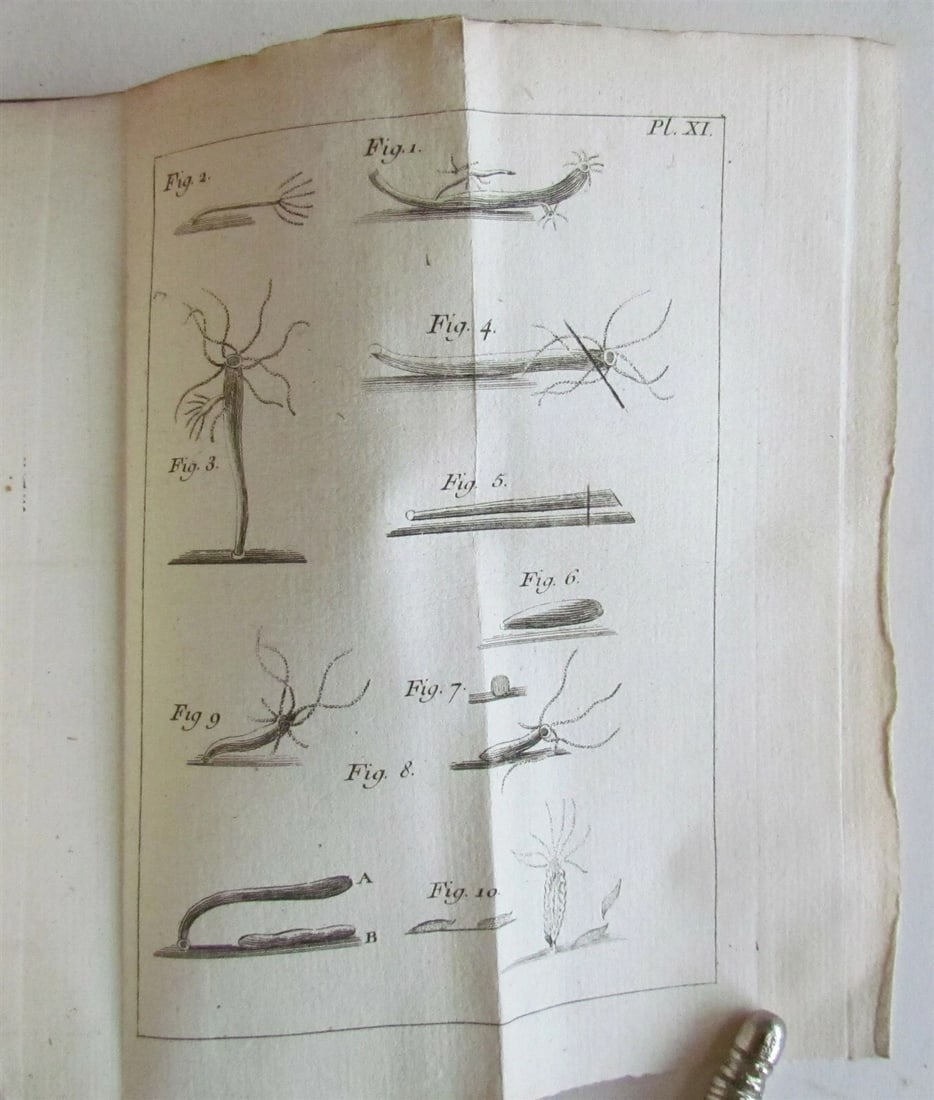 Pl. XI.
Fig. 1.
Fig. 2.
Fig. 4.
Fig. 3.
Fig. 5.
Fig. 6.
Fig. 7.
Fig 9
Fig. 8.
A
Fig. 10.
B